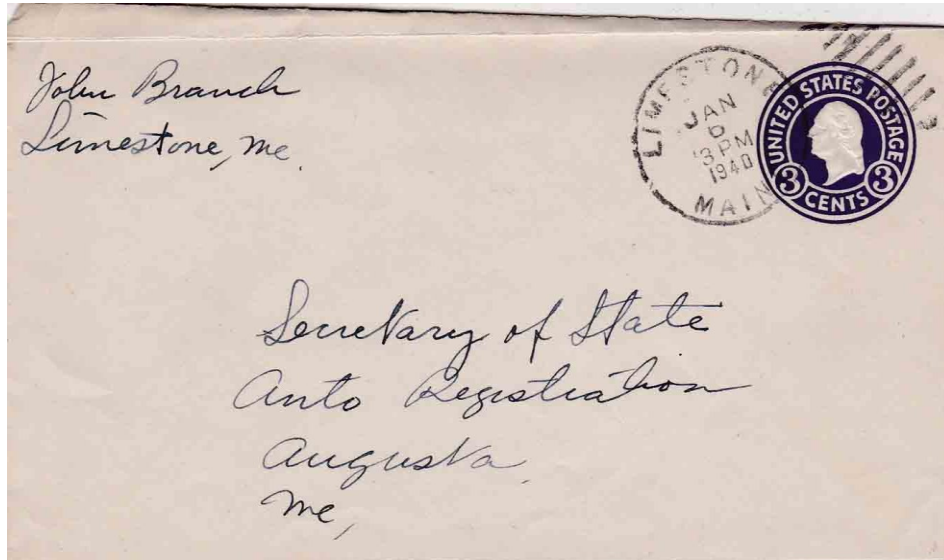 John Branch
Limestone, Me.
LIMESTONE
JAN
6
3 PM
1940
MAINE
UNITED STATES POSTAGE
3 CENTS 3
Secretary of State
Auto Registration
Augusta
Me,